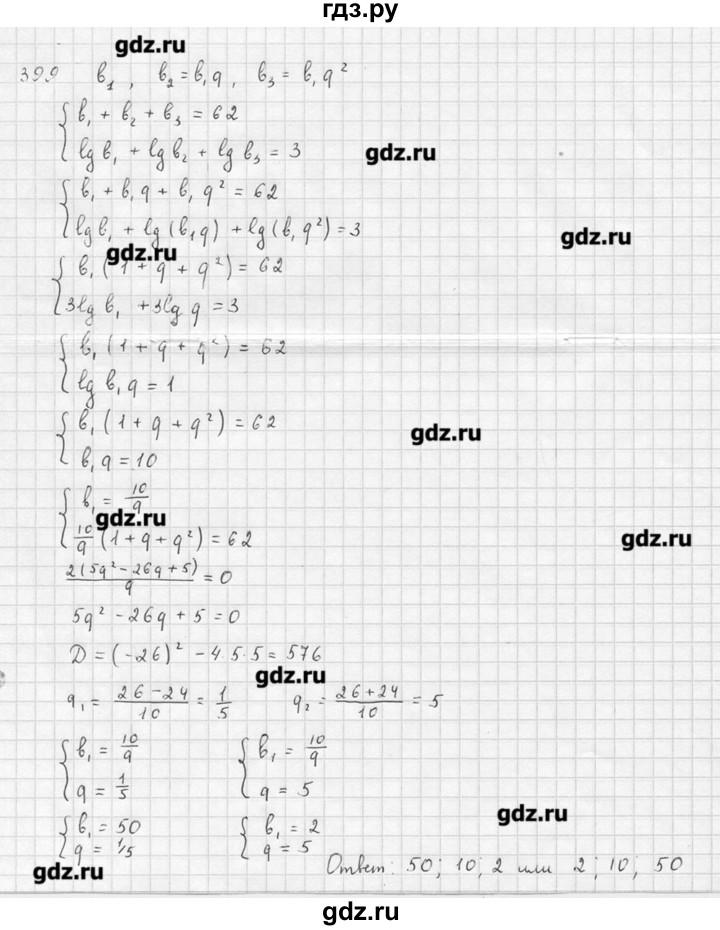 гдз.ру
gdz.ru
399 b₁, b₂ = b₁q, b₃ = b₁q²
{ b₁ + b₂ + b₃ = 62
lg b₁ + lg b₂ + lg b₃ = 3
gdz.ru
{ b₁ + b₁q + b₁q² = 62
lg b₁ + lg (b₁q) + lg (b₁q²) = 3
gdz.ru
gdz.ru
{ b₁ (1 + q + q²) = 62
3lg b₁ + 3lg q = 3
{ b₁ (1 + q + q²) = 62
lg b₁q = 1
{ b₁ (1 + q + q²) = 62
gdz.ru
b₁q = 10
{ b₁ = 10/q
gdz.ru
10/q (1 + q + q²) = 62
gdz.ru
2(5q² - 26q + 5)/q = 0
5q² - 26q + 5 = 0
D = (-26)² - 4·5·5 = 576
gdz.ru
q₁ = (26 - 24)/10 = 1/5 q₂ = (26 + 24)/10 = 5
{ b₁ = 10/q { b₁ = 10/q
q = 1/5 q = 5
gdz.ru
{ b₁ = 50 { b₁ = 2
q = 1/5 q = 5
Ответ: 50; 10; 2 или 2; 10; 50
gdz.ru
gdz.ru